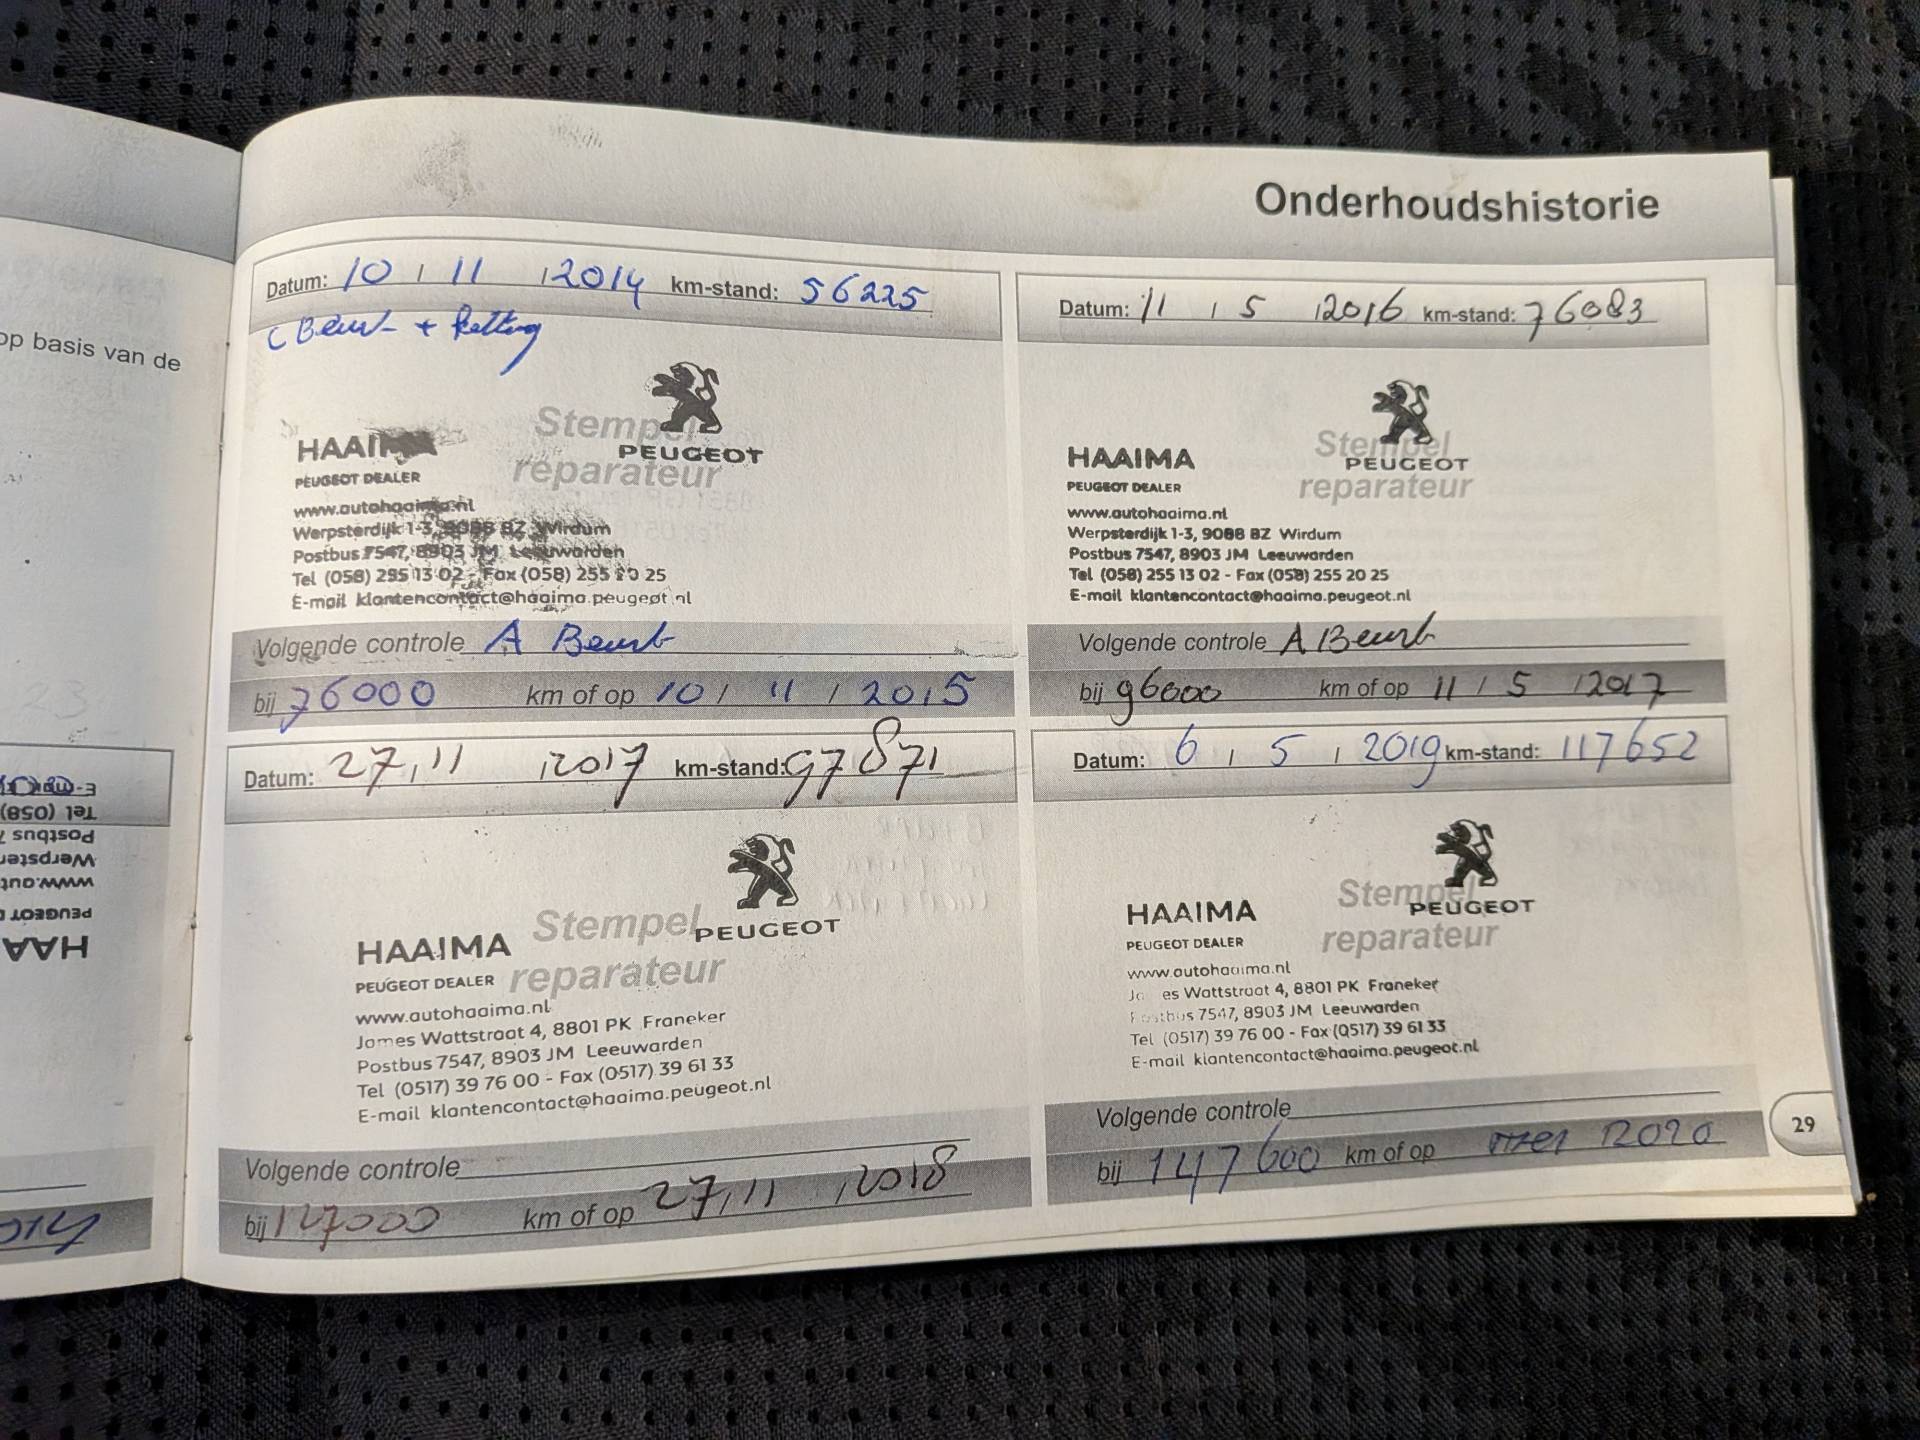 Onderhoudshistorie
op basis van de
Datum: 10 / 11 / 2014 km-stand: 56225
C Beurt + ketting
Stempel
reparateur
PEUGEOT
HAAIMA
PEUGEOT DEALER
www.autohaaima.nl
Werpsterdijk 1-3, 9088 BZ Wirdum
Postbus 7547, 8903 JM Leeuwarden
Tel (058) 255 13 02 - Fax (058) 255 20 25
E-mail klantencontact@haaima.peugeot.nl
Volgende controle A Beurt
bij 76000 km of op 10 / 11 / 2015
Datum: 11 / 5 / 2016 km-stand: 76083
Stempel
reparateur
PEUGEOT
HAAIMA
PEUGEOT DEALER
www.autohaaima.nl
Werpsterdijk 1-3, 9088 BZ Wirdum
Postbus 7547, 8903 JM Leeuwarden
Tel (058) 255 13 02 - Fax (058) 255 20 25
E-mail klantencontact@haaima.peugeot.nl
Volgende controle A Beurt
bij 96000 km of op 11 / 5 / 2017
Datum: 27 / 11 / 2017 km-stand: 97871
Stempel
reparateur
PEUGEOT
HAAIMA
PEUGEOT DEALER
www.autohaaima.nl
James Wattstraat 4, 8801 PK Franeker
Postbus 7547, 8903 JM Leeuwarden
Tel (0517) 39 76 00 - Fax (0517) 39 61 33
E-mail klantencontact@haaima.peugeot.nl
Volgende controle
bij 127000 km of op 27 / 11 / 2018
Datum: 6 / 5 / 2019 km-stand: 117652
Stempel
reparateur
PEUGEOT
HAAIMA
PEUGEOT DEALER
www.autohaaima.nl
James Wattstraat 4, 8801 PK Franeker
Postbus 7547, 8903 JM Leeuwarden
Tel (0517) 39 76 00 - Fax (0517) 39 61 33
E-mail klantencontact@haaima.peugeot.nl
Volgende controle
bij 147600 km of op mei / 2020
29
HAA
PEUGEOT
www.aut
Werpster
Postbus 7
Tel (058)